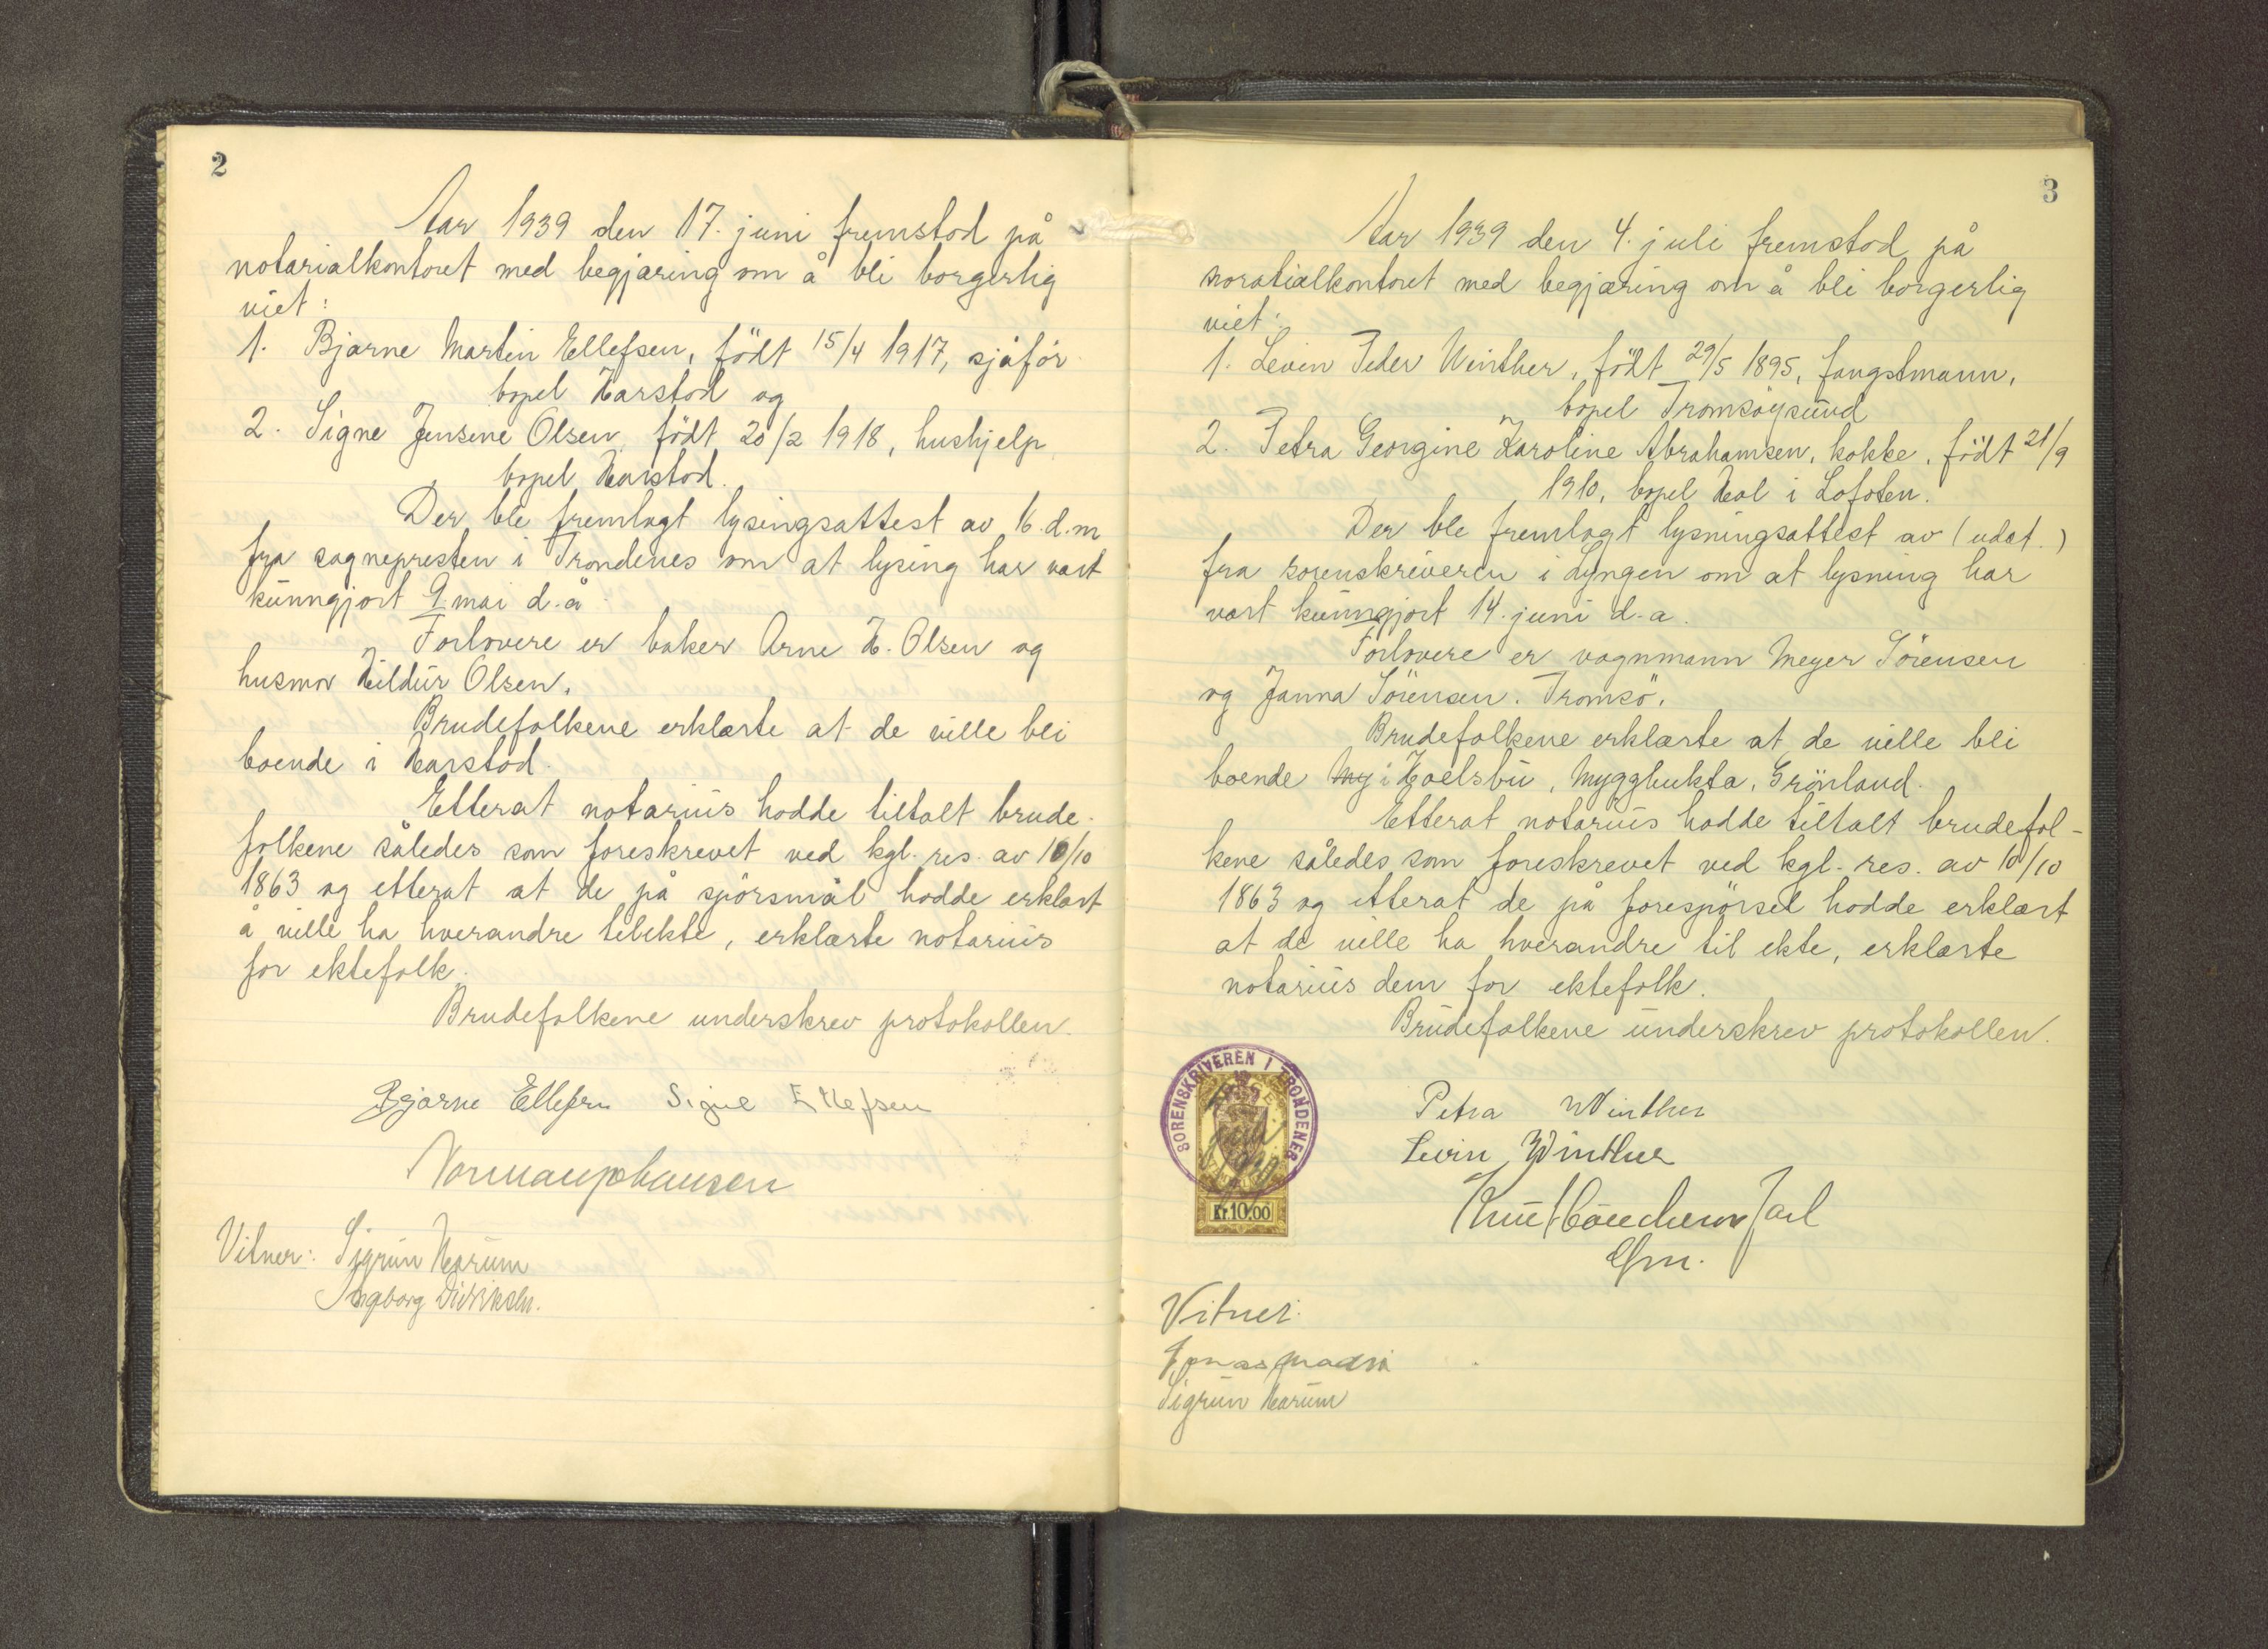 2
Aar 1939 den 17. juni fremstod på
notarialkontoret med begjæring om å bli borgerlig
viet:
1. Bjarne Martin Ellefsen, födt 15/4 1917, sjåför
bopel Harstad og
2. Signe Jensene Olsen, födt 20/2 1918, hushjelp
bopel Harstad.
Der ble fremlagt lysingsattest av 16. d.m
fra sognepresten i Trondenes om at lysing har vært
kunngjort 9 mai d.å.
Forlovere er baker Arne H. Olsen og
husmor Hildur Olsen.
Brudefolkene erklærte at de ville bli
boende i Harstad.
Etterat notarius hadde tiltalt brude-
folkene således som foreskrevet ved kgl. res. av 10/10
1863 og etterat at de på spörsmål hadde erklært
å ville ha hverandre tilekte, erklærte notarius
for ektefolk.
Brudefolkene underskrev protokollen.
Bjarne Ellefsen Signe Ellefsen
Vitner: Sigrun Harum
Ingborg Didriksen.
3
Aar 1939 den 4. juli fremstod på
noratialkontoret med begjæring om å bli borgerlig
viet:
1. Levin Peder Winther, födt 29/5 1895, fangstmann,
bopel Tromsöysund
2. Petra Georgine Karoline Abrahamsen, kokke, födt 21/9
1910, bopel Hol i Lofoten.
Der ble fremlagt lysningsattest av (udat.)
fra sorenskriveren i Lyngen om at lysning har
vært kunngjort 14. juni d.a.
Forlovere er vognmann Meyer Sörensen
og Janna Sörensen. Tromsö.
Brudefolkene erklærte at de ville bli
boende My i Hoelsbu, Myggbukta, Grönland.
Etterat notarius hadde tiltalt brudefol-
kene således som foreskrevet ved kgl. res. av 10/10
1863 og etterat de på forespörsel hadde erklært
at de ville ha hverandre til ekte, erklærte
notarius dem for ektefolk.
Brudefolkene underskrev protokollen.
SORENSKRIVEREN I TRONDENES
Kr. 10.00
Petra Winther
Levin Winther
Vitner:
Sigrun Harum